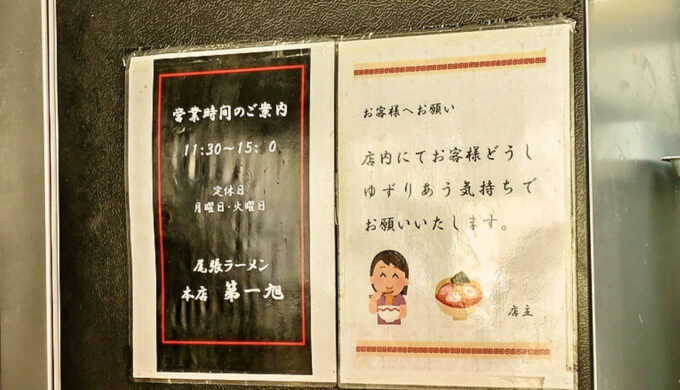 営業時間のご案内
11:30～15: 0
定休日
月曜日・火曜日
尾張ラーメン
本店 第一旭
お客様へお願い
店内にてお客様どうし
ゆずりあう気持ちで
お願いいたします。
店主